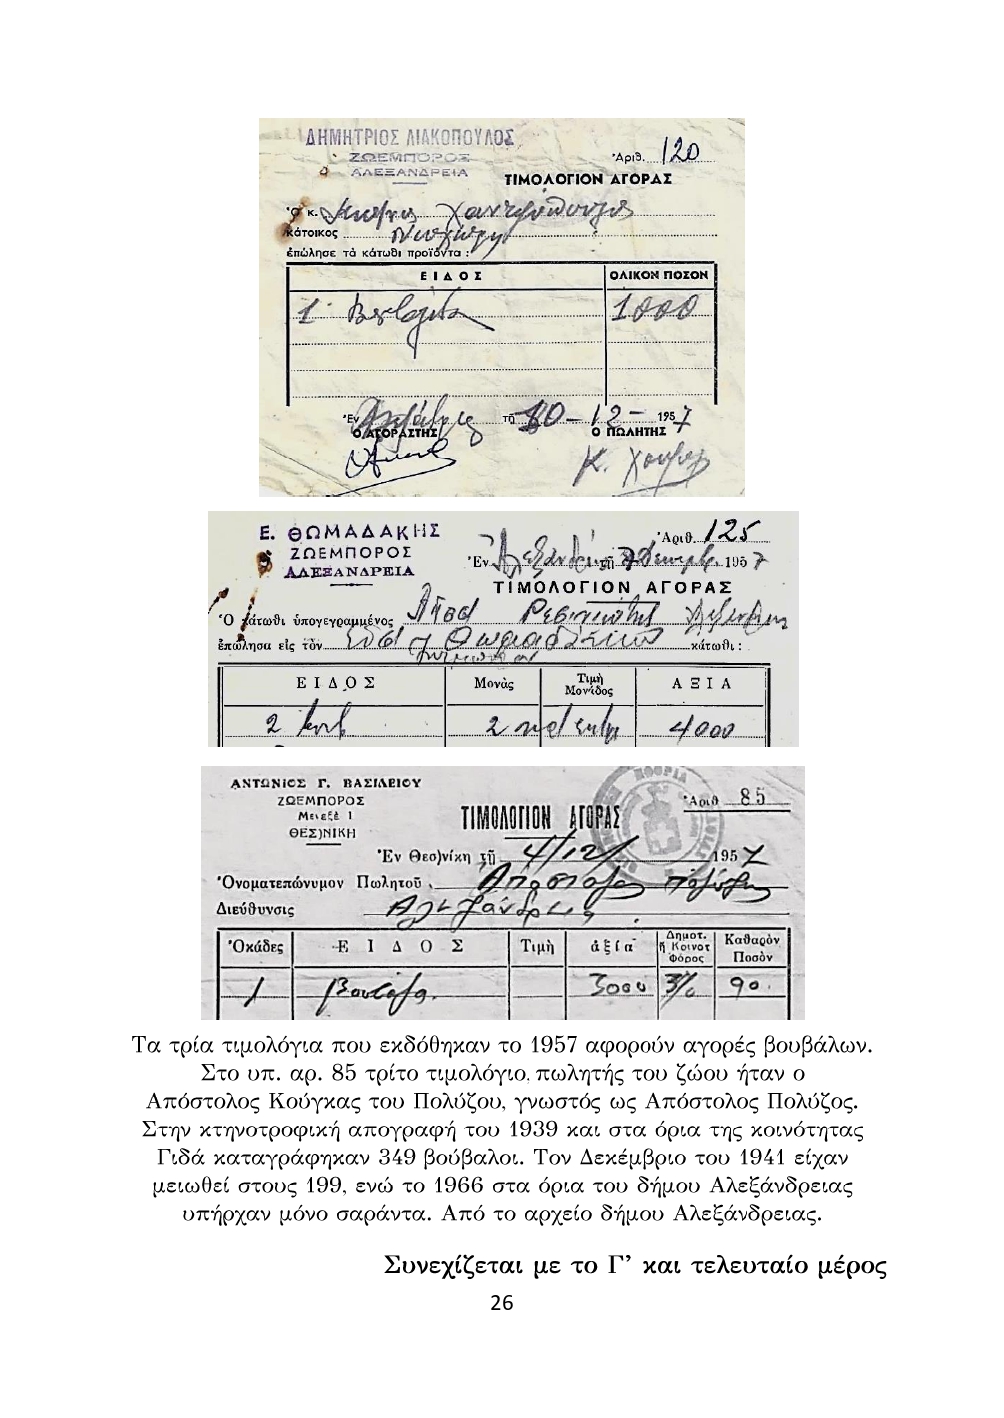 ΔΗΜΗΤΡΙΟΣ ΛΙΑΚΟΠΟΥΛΟΣ
ΖΩΕΜΠΟΡΟΣ
ΑΛΕΞΑΝΔΡΕΙΑ
Ἀριθ. 120
ΤΙΜΟΛΟΓΙΟΝ ΑΓΟΡΑΣ
Ὁ κ.
κάτοικος
ἐπώλησε τὰ κάτωθι προϊόντα :
ΕΙΔΟΣ ΟΛΙΚΟΝ ΠΟΣΟΝ
1 1000
Ἐν τῇ 10-12-1957
Ο ΑΓΟΡΑΣΤΗΣ Ο ΠΩΛΗΤΗΣ
Ε. ΘΩΜΑΔΑΚΗΣ
ΖΩΕΜΠΟΡΟΣ
ΑΛΕΞΑΝΔΡΕΙΑ
Ἀριθ. 125
Ἐν τῇ 1957
ΤΙΜΟΛΟΓΙΟΝ ΑΓΟΡΑΣ
Ὁ κάτωθι ὑπογεγραμμένος
ἐπώλησα εἰς τὸν κάτωθι :
ΕΙΔΟΣ Μονὰς Τιμὴ Μονάδος ΑΞΙΑ
2 2 4000
ΑΝΤΩΝΙΟΣ Γ. ΒΑΣΙΛΕΙΟΥ
ΖΩΕΜΠΟΡΟΣ
Μενεξέ 1
ΘΕΣ)ΝΙΚΗ
Ἀριθ 85
ΤΙΜΟΛΟΓΙΟΝ ΑΓΟΡΑΣ
Ἐν Θεσ)νίκη τῇ 4/12/1957
Ὀνοματεπώνυμον Πωλητοῦ Ἀπόστολος Πολύζος
Διεύθυνσις Αλεξάνδρεια
Ὀκάδες ΕΙΔΟΣ Τιμὴ ἀξία Δημοτ. ἢ Κοινοτ Φόρος Καθαρὸν Ποσὸν
1 3000 3% 90
Τα τρία τιμολόγια που εκδόθηκαν το 1957 αφορούν αγορές βουβάλων.
Στο υπ. αρ. 85 τρίτο τιμολόγιο, πωλητής του ζώου ήταν ο
Απόστολος Κούγκας του Πολύζου, γνωστός ως Απόστολος Πολύζος.
Στην κτηνοτροφική απογραφή του 1939 και στα όρια της κοινότητας
Γιδά καταγράφηκαν 349 βούβαλοι. Τον Δεκέμβριο του 1941 είχαν
μειωθεί στους 199, ενώ το 1966 στα όρια του δήμου Αλεξάνδρειας
υπήρχαν μόνο σαράντα. Από το αρχείο δήμου Αλεξάνδρειας.
Συνεχίζεται με το Γ’ και τελευταίο μέρος
26